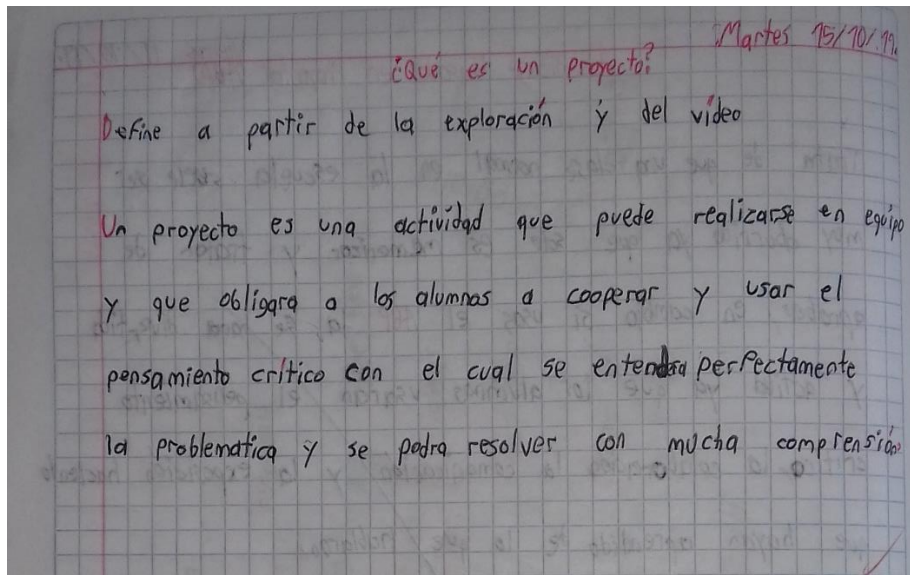 Martes 15/10/19.
¿Qué es un proyecto?
Define a partir de la exploración y del video
Un proyecto es una actividad que puede realizarse en equipo
y que obligara a los alumnos a cooperar y usar el
pensamiento crítico con el cual se entendra perfectamente
la problematica y se podra resolver con mucha comprensión